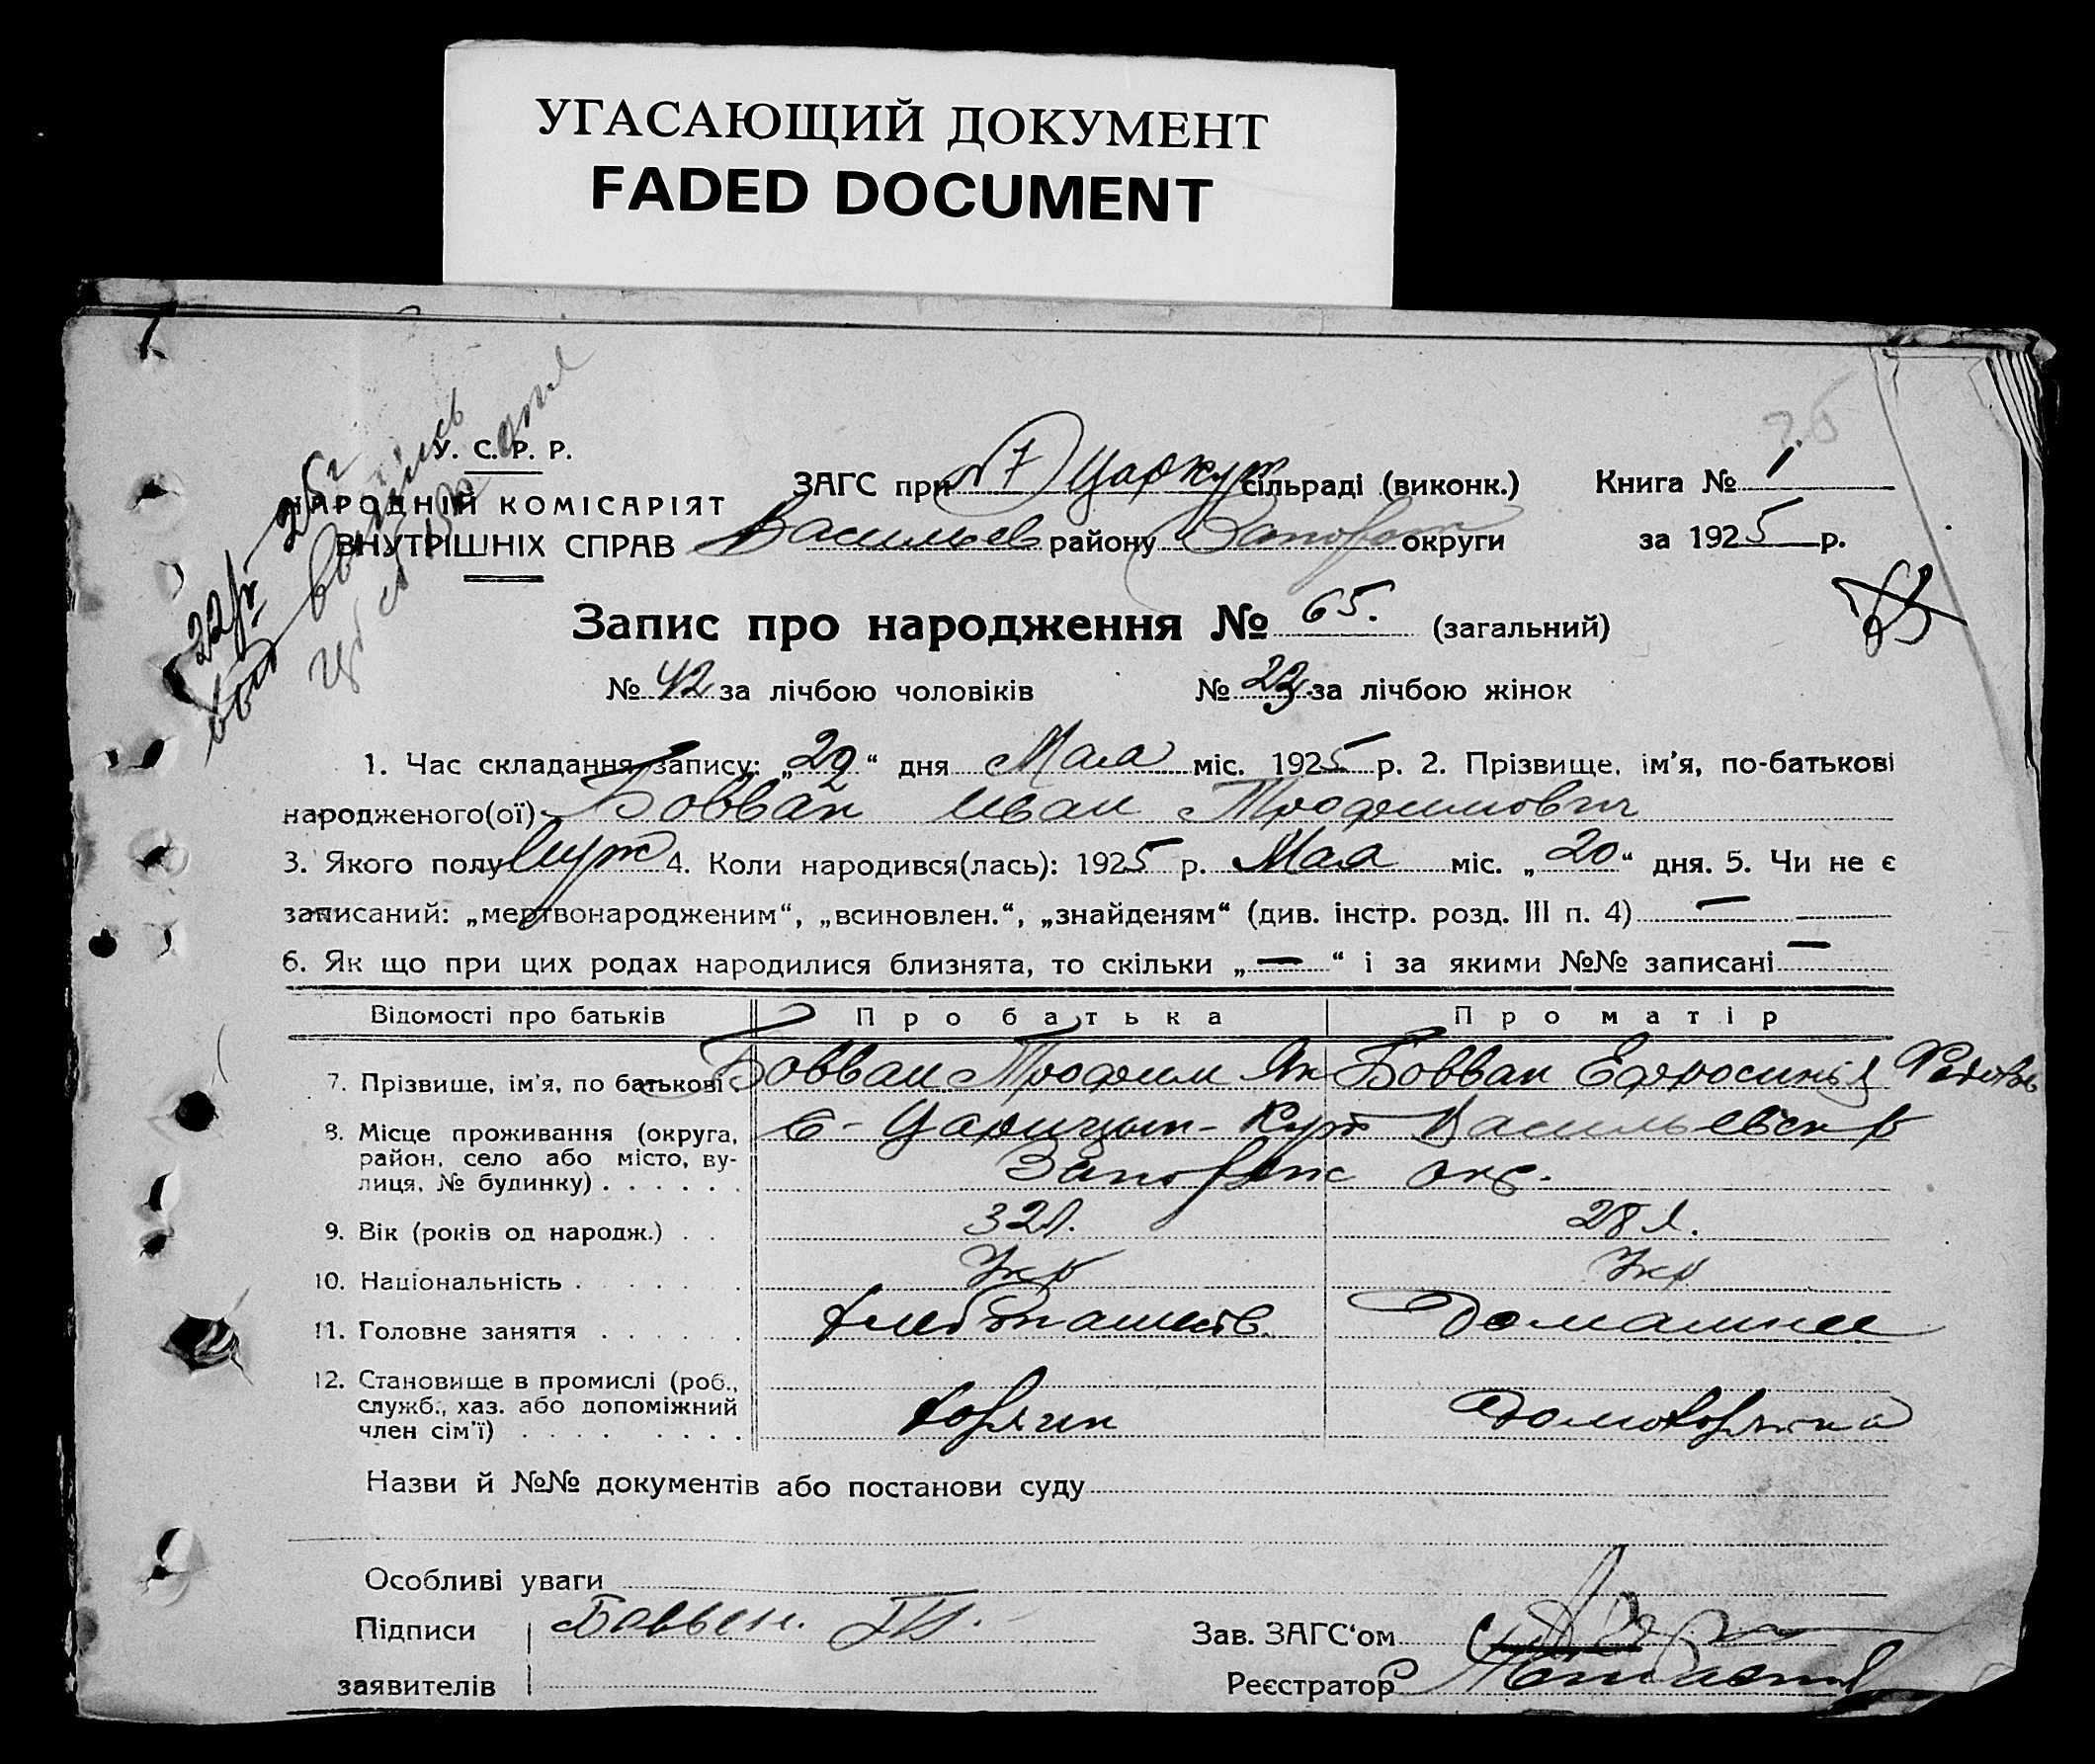 УГАСАЮЩИЙ ДОКУМЕНТ
FADED DOCUMENT
У. С. Р. Р.
НАРОДНІЙ КОМІСАРІЯТ
ВНУТРІШНІХ СПРАВ
ЗАГС при сільраді (виконк.)
Васильев району округи
Книга № 1.
за 1925 р.
22/V 25г
Запис про народження № 65. (загальний)
№ 42 за лічбою чоловіків № 23 за лічбою жінок
1. Час складання запису: „29“ дня Мая міс. 1925 р. 2. Прізвище, ім'я, по-батькові
народженого(ої) Бовван Иван Трофимович
3. Якого полу Муж 4. Коли народився(лась): 1925 р. Мая міс. „20“ дня. 5. Чи не є
записаний: „мертвонародженим“, „всиновлен.“, „знайденям“ (див. інстр. розд. III п. 4) —
6. Як що при цих родах народилися близнята, то скільки „—“ і за якими №№ записані —
Відомості про батьків Про батька Про матір
7. Прізвище, ім'я, по батькові Бовван Трофим Як Бовван Ефросинья
8. Місце проживання (округа, район, село або місто, вулиця, № будинку) с- Царицын- Кут Васильевск р
Запорож окр.
9. Вік (років од народж.) 32 л. 28 л.
10. Національність Укр Укр
11. Головне заняття хлебопашеств. Домашнее
12. Становище в промислі (роб., служб., хаз. або допоміжний член сім'ї) хозяин домохозяйка
Назви й №№ документів або постанови суду
Особливі уваги
Підписи заявителів Бовван. Зав. ЗАГС'ом
Реєстратор